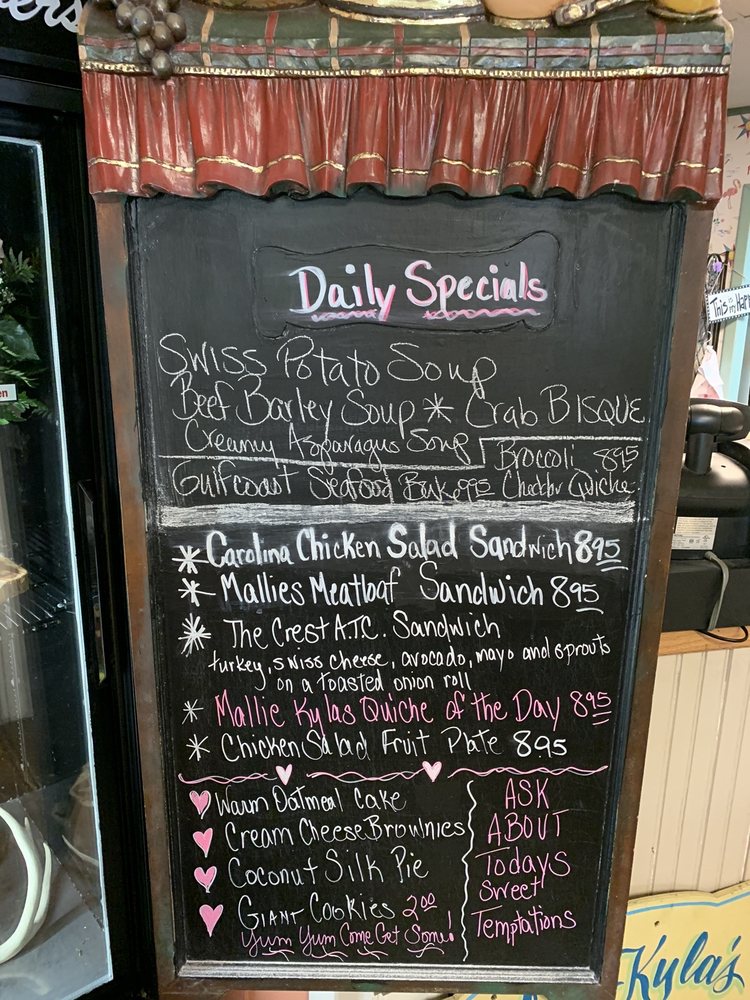 ers
Daily Specials
Swiss Potato Soup
Beef Barley Soup * Crab BISQUE
Creamy Asparagus Soup
Broccoli 8.95
Gulfcoast Seafood Bake 9.95 Cheddar Quiche
* Carolina Chicken Salad Sandwich 8.95
* Mallies Meatloaf Sandwich 8.95
* The Crest A.T.C. Sandwich
turkey, swiss cheese, avocado, mayo and sprouts
on a toasted onion roll
* Mallie Kylas Quiche of the Day 8.95
* Chicken Salad Fruit Plate 8.95
Warm Oatmeal Cake
Cream Cheese Brownies
Coconut Silk Pie
Giant Cookies 2.00
Yum Yum Come Get Some!
ASK
ABOUT
Todays
Sweet
Temptations
This is
Kyla's